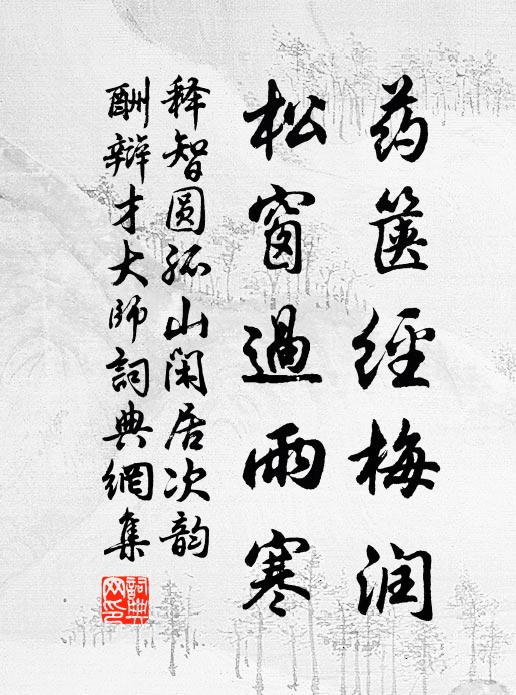 药箧經梅润
松窗過雨寒
释智圆孤山闲居次韵
酬辩才大师詞典網集
詞典